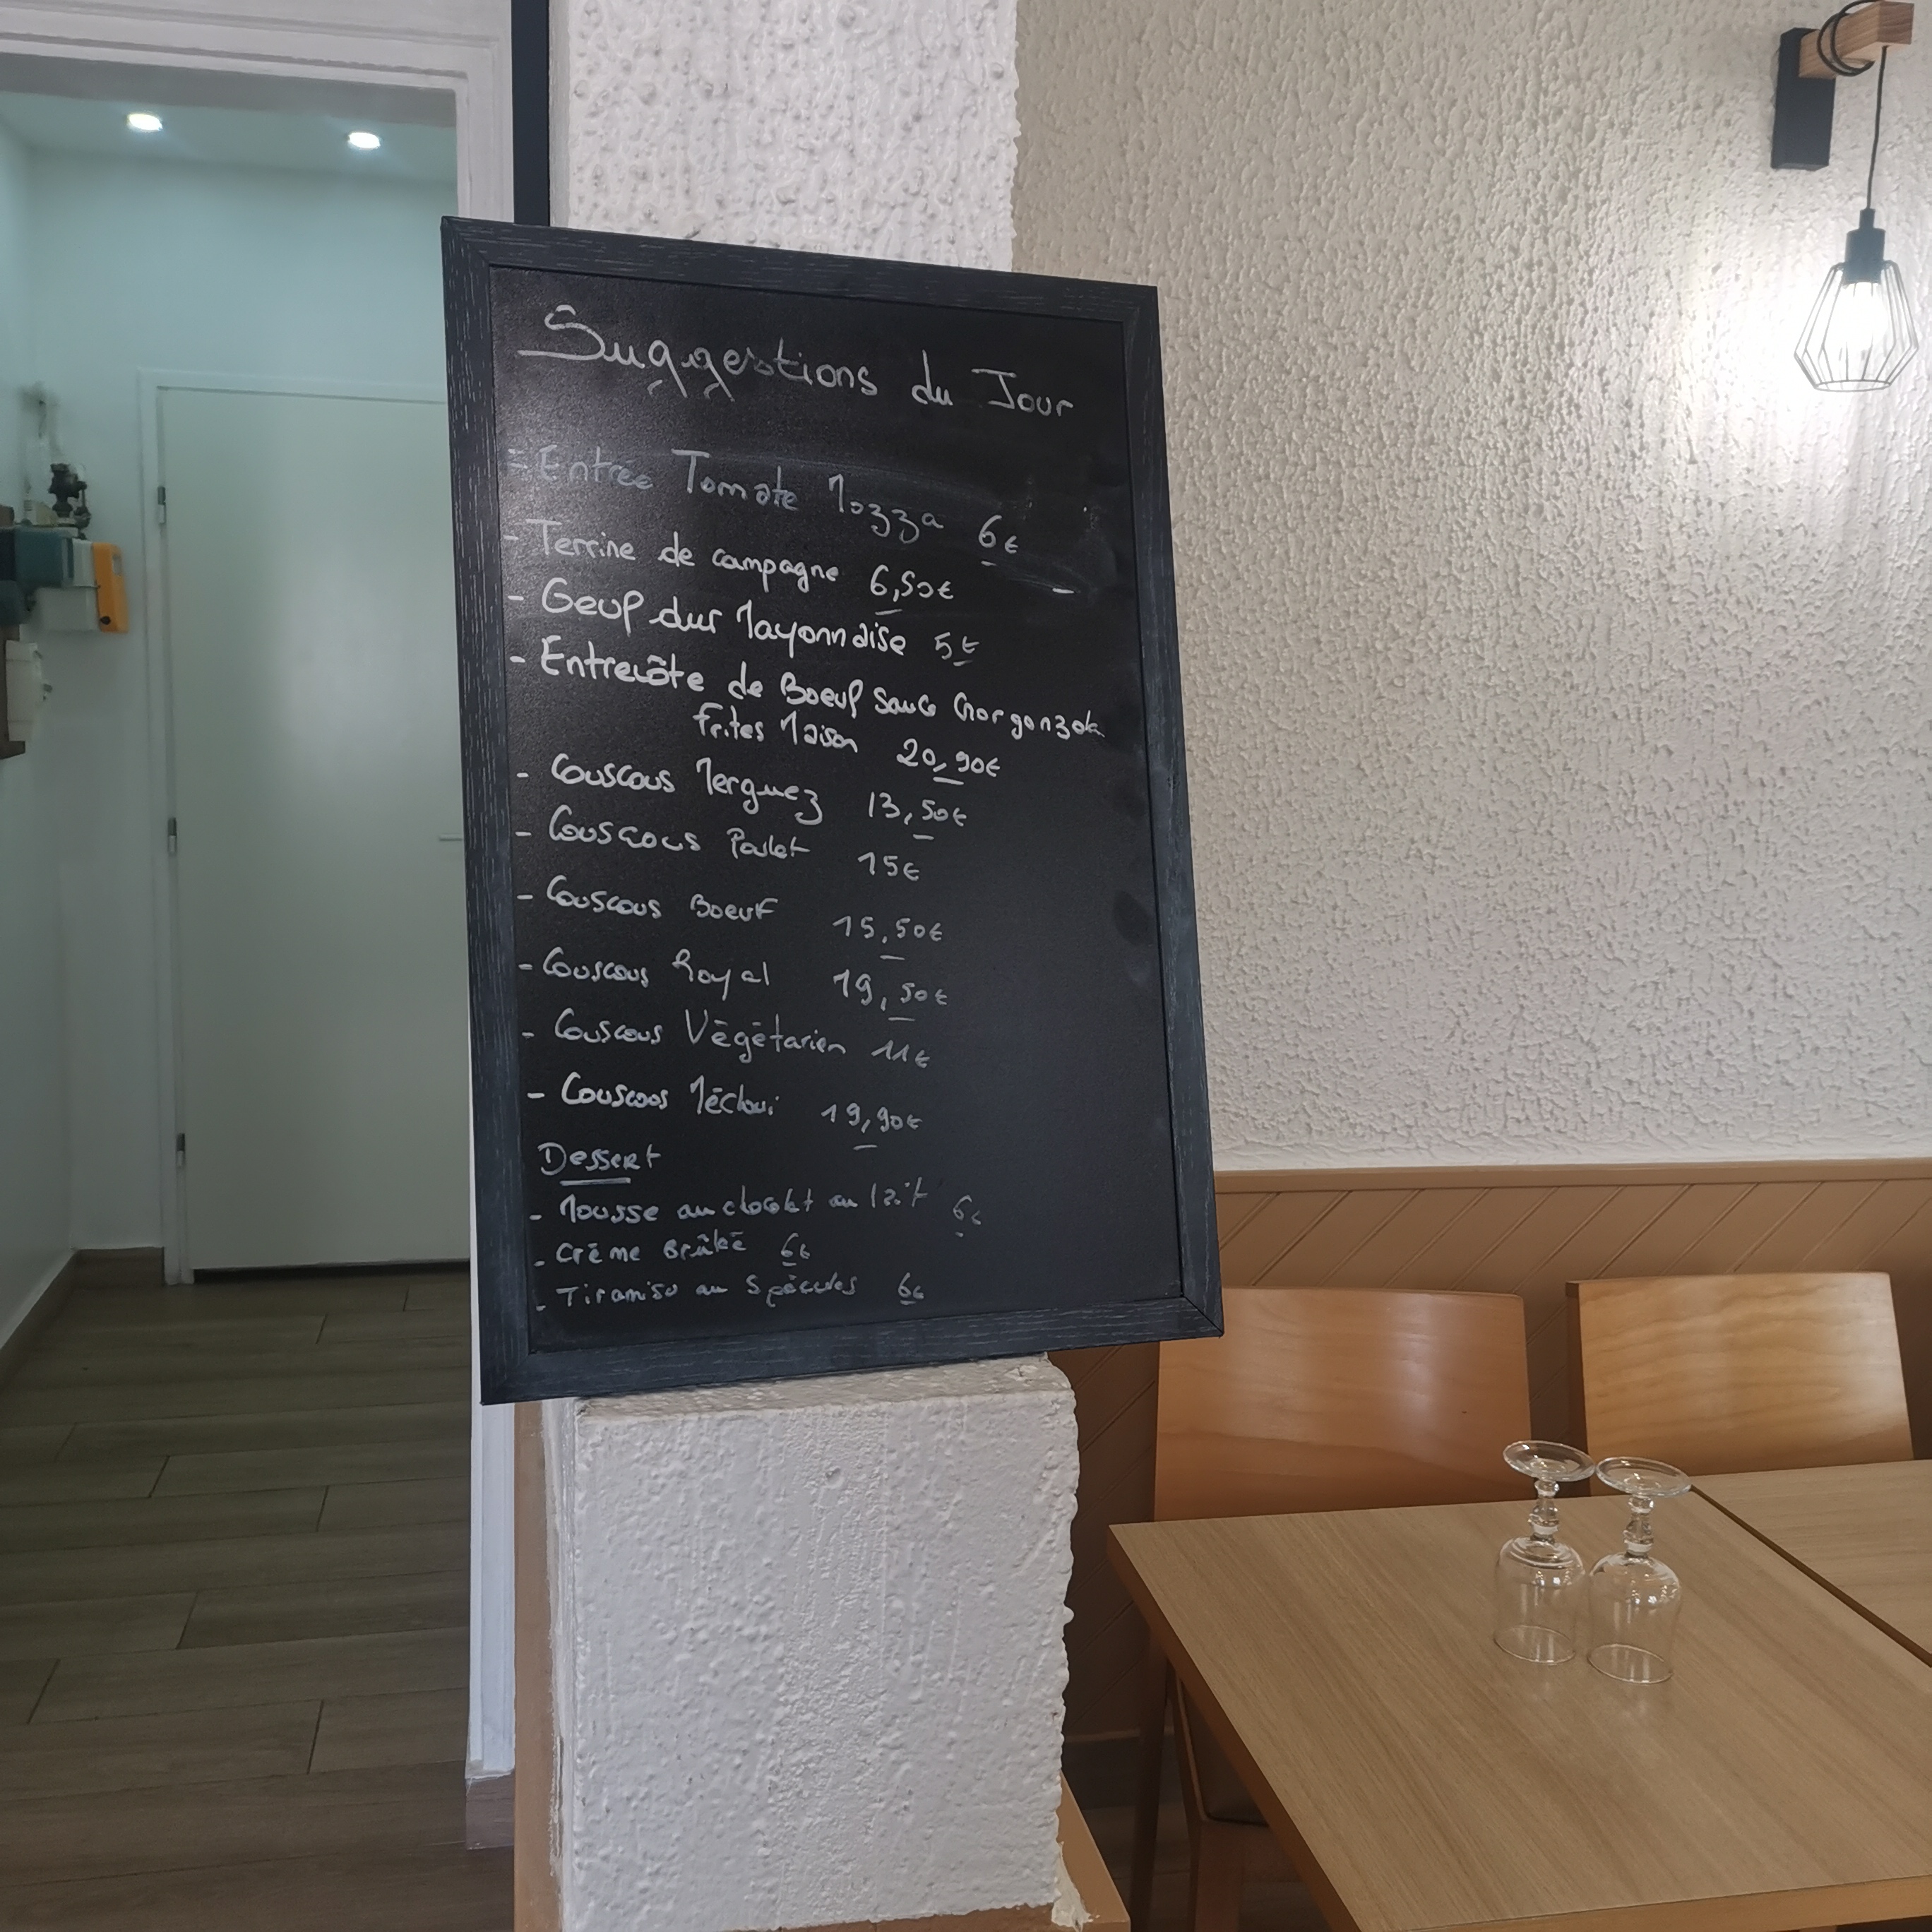 Suggestions du Jour
- Entrée Tomate Mozza 6€
- Terrine de campagne 6,50€
- Oeuf dur Mayonnaise 5€
- Entrecôte de Boeuf Sauce Gorgonzola
Frites Maison 20,90€
- Couscous Merguez 13,50€
- Couscous Poulet 15€
- Couscous Boeuf 15,50€
- Couscous Royal 19,50€
- Couscous Végétarien 11€
- Couscous Méchoui 19,90€
Dessert
- Mousse au chocolat au lait 6€
- Crème Brûlée 6€
- Tiramisu au Spéculos 6€